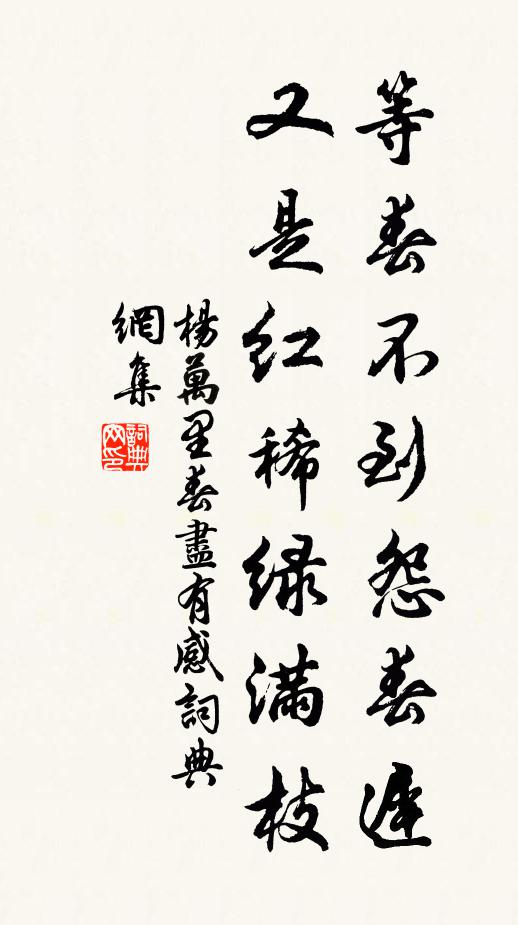 等春不到怨春遲
又是紅稀綠滿枝
楊萬里春盡有感詞典
網集
詞典
网印